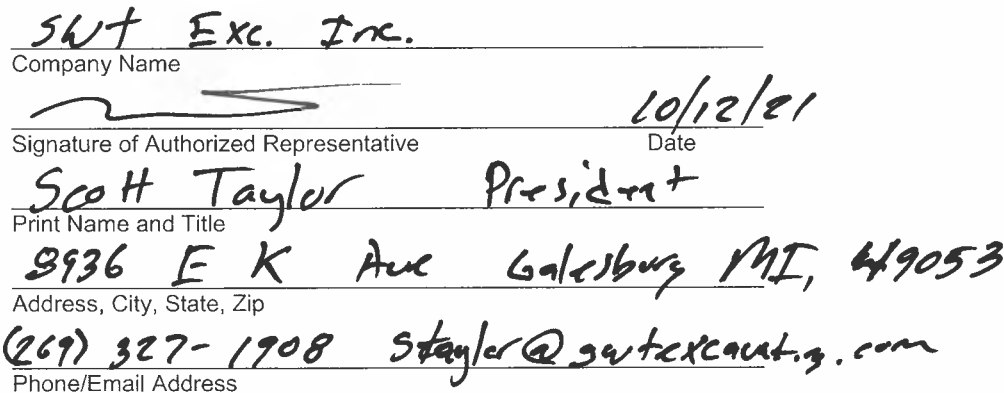 SWT Exc. Inc.
Company Name
10/12/21
Signature of Authorized Representative Date
Scott Taylor President
Print Name and Title
8936 E K Ave Galesburg MI, 49053
Address, City, State, Zip
(269) 327-1908 staylor@swtexcavating.com
Phone/Email Address